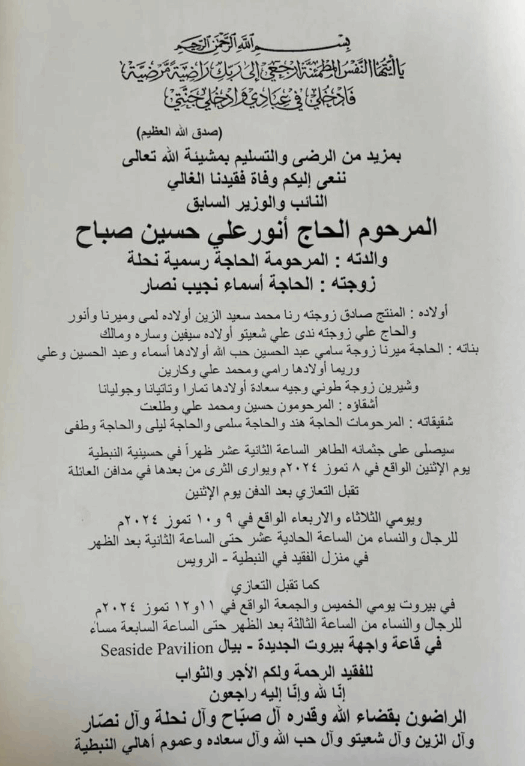 بسم الله الرحمن الرحيم
يا أيتها النفس المطمئنة ارجعي إلى ربك راضية مرضية
فادخلي في عبادي وادخلي جنتي
(صدق الله العظيم)
بمزيد من الرضى والتسليم بمشيئة الله تعالى
ننعى إليكم وفاة فقيدنا الغالي
النائب والوزير السابق
المرحوم الحاج أنور علي حسين صباح
والدته : المرحومة الحاجة رسمية نحلة
زوجته : الحاجة أسماء نجيب نصار
أولاده : المنتج صادق زوجته رنا محمد سعيد الزين أولاده لمى وميرنا وأنور
والحاج علي زوجته ندى علي شعيتو أولاده سيفين وساره ومالك
بناته : الحاجة ميرنا زوجة سامي عبد الحسين حب الله أولادها أسماء وعبد الحسين وعلي
وريما أولادها رامي ومحمد علي وكارين
وشيرين زوجة طوني وجيه سعادة أولادها تمارا وتاتيانا وجوليانا
أشقاؤه : المرحومون حسين ومحمد علي وطلعت
شقيقاته : المرحومات الحاجة هند والحاجة سلمى والحاجة ليلى والحاجة وطفى
سيصلى على جثمانه الطاهر الساعة الثانية عشر ظهراً في حسينية النبطية
يوم الإثنين الواقع في ٨ تموز ٢٠٢٤م ويوارى الثرى من بعدها في مدافن العائلة
تقبل التعازي بعد الدفن يوم الإثنين
ويومي الثلاثاء والاربعاء الواقع في ٩ و١٠ تموز ٢٠٢٤م
للرجال والنساء من الساعة الحادية عشر حتى الساعة الثانية بعد الظهر
في منزل الفقيد في النبطية - الرويس
كما تقبل التعازي
في بيروت يومي الخميس والجمعة الواقع في ١١و١٢ تموز ٢٠٢٤م
للرجال والنساء من الساعة الثالثة بعد الظهر حتى الساعة السابعة مساءً
في قاعة واجهة بيروت الجديدة - بيال Seaside Pavilion
للفقيد الرحمة ولكم الأجر والثواب
إنّا لله وإنّا إليه راجعون
الراضون بقضاء الله وقدره آل صبّاح وآل نحلة وآل نصّار
وآل الزين وآل شعيتو وآل حب الله وآل سعاده وعموم أهالي النبطية